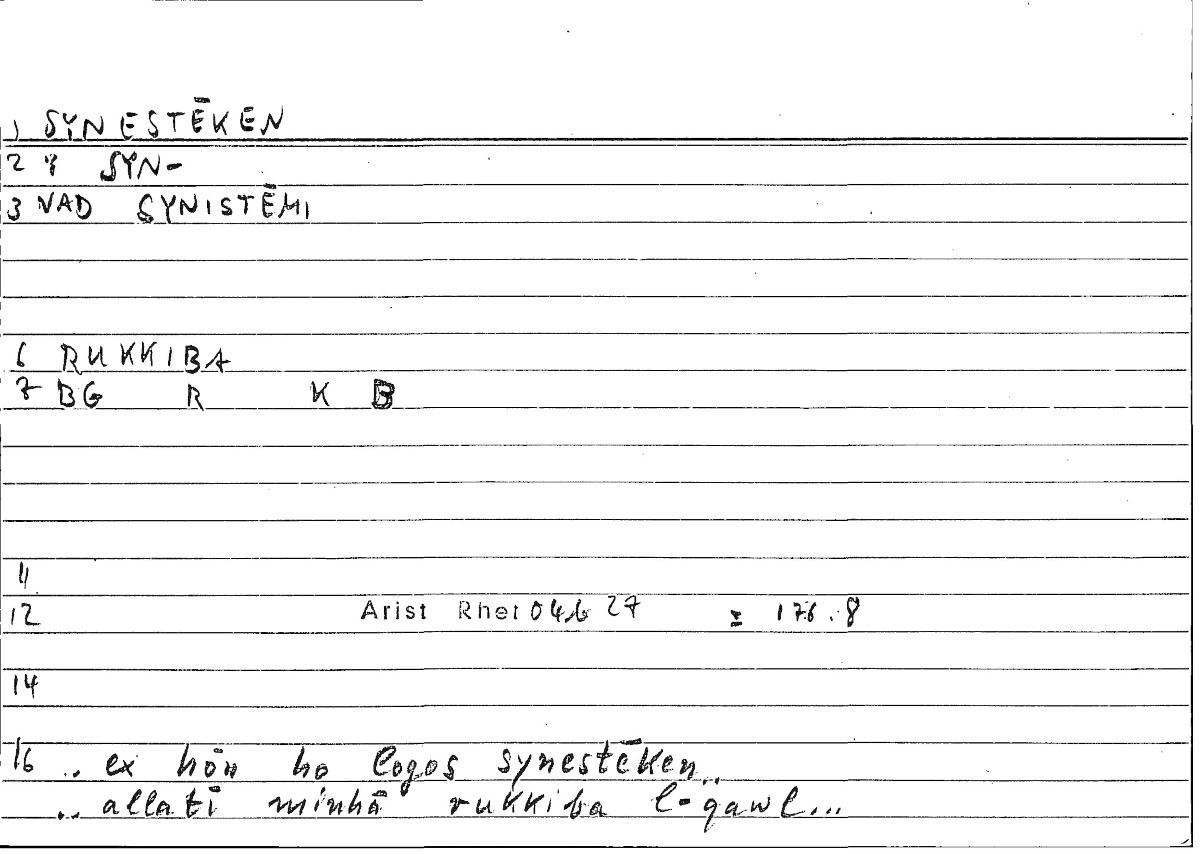 1 SYNESTĒKEN
2 SYN-
3 VAD SYNISTĒMI
6 RUKKIBA
7 BG R K B
12 Arist Rhet 04b 27 = 176.8
14
16 .. ex hōn ho logos synestēken..
.. allatī minhā rukkiba l-qawl...